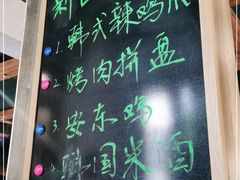 1. 韩式辣鸡爪
2. 烤肉拼盘
3. 安东鸡
4. 韩国米酒